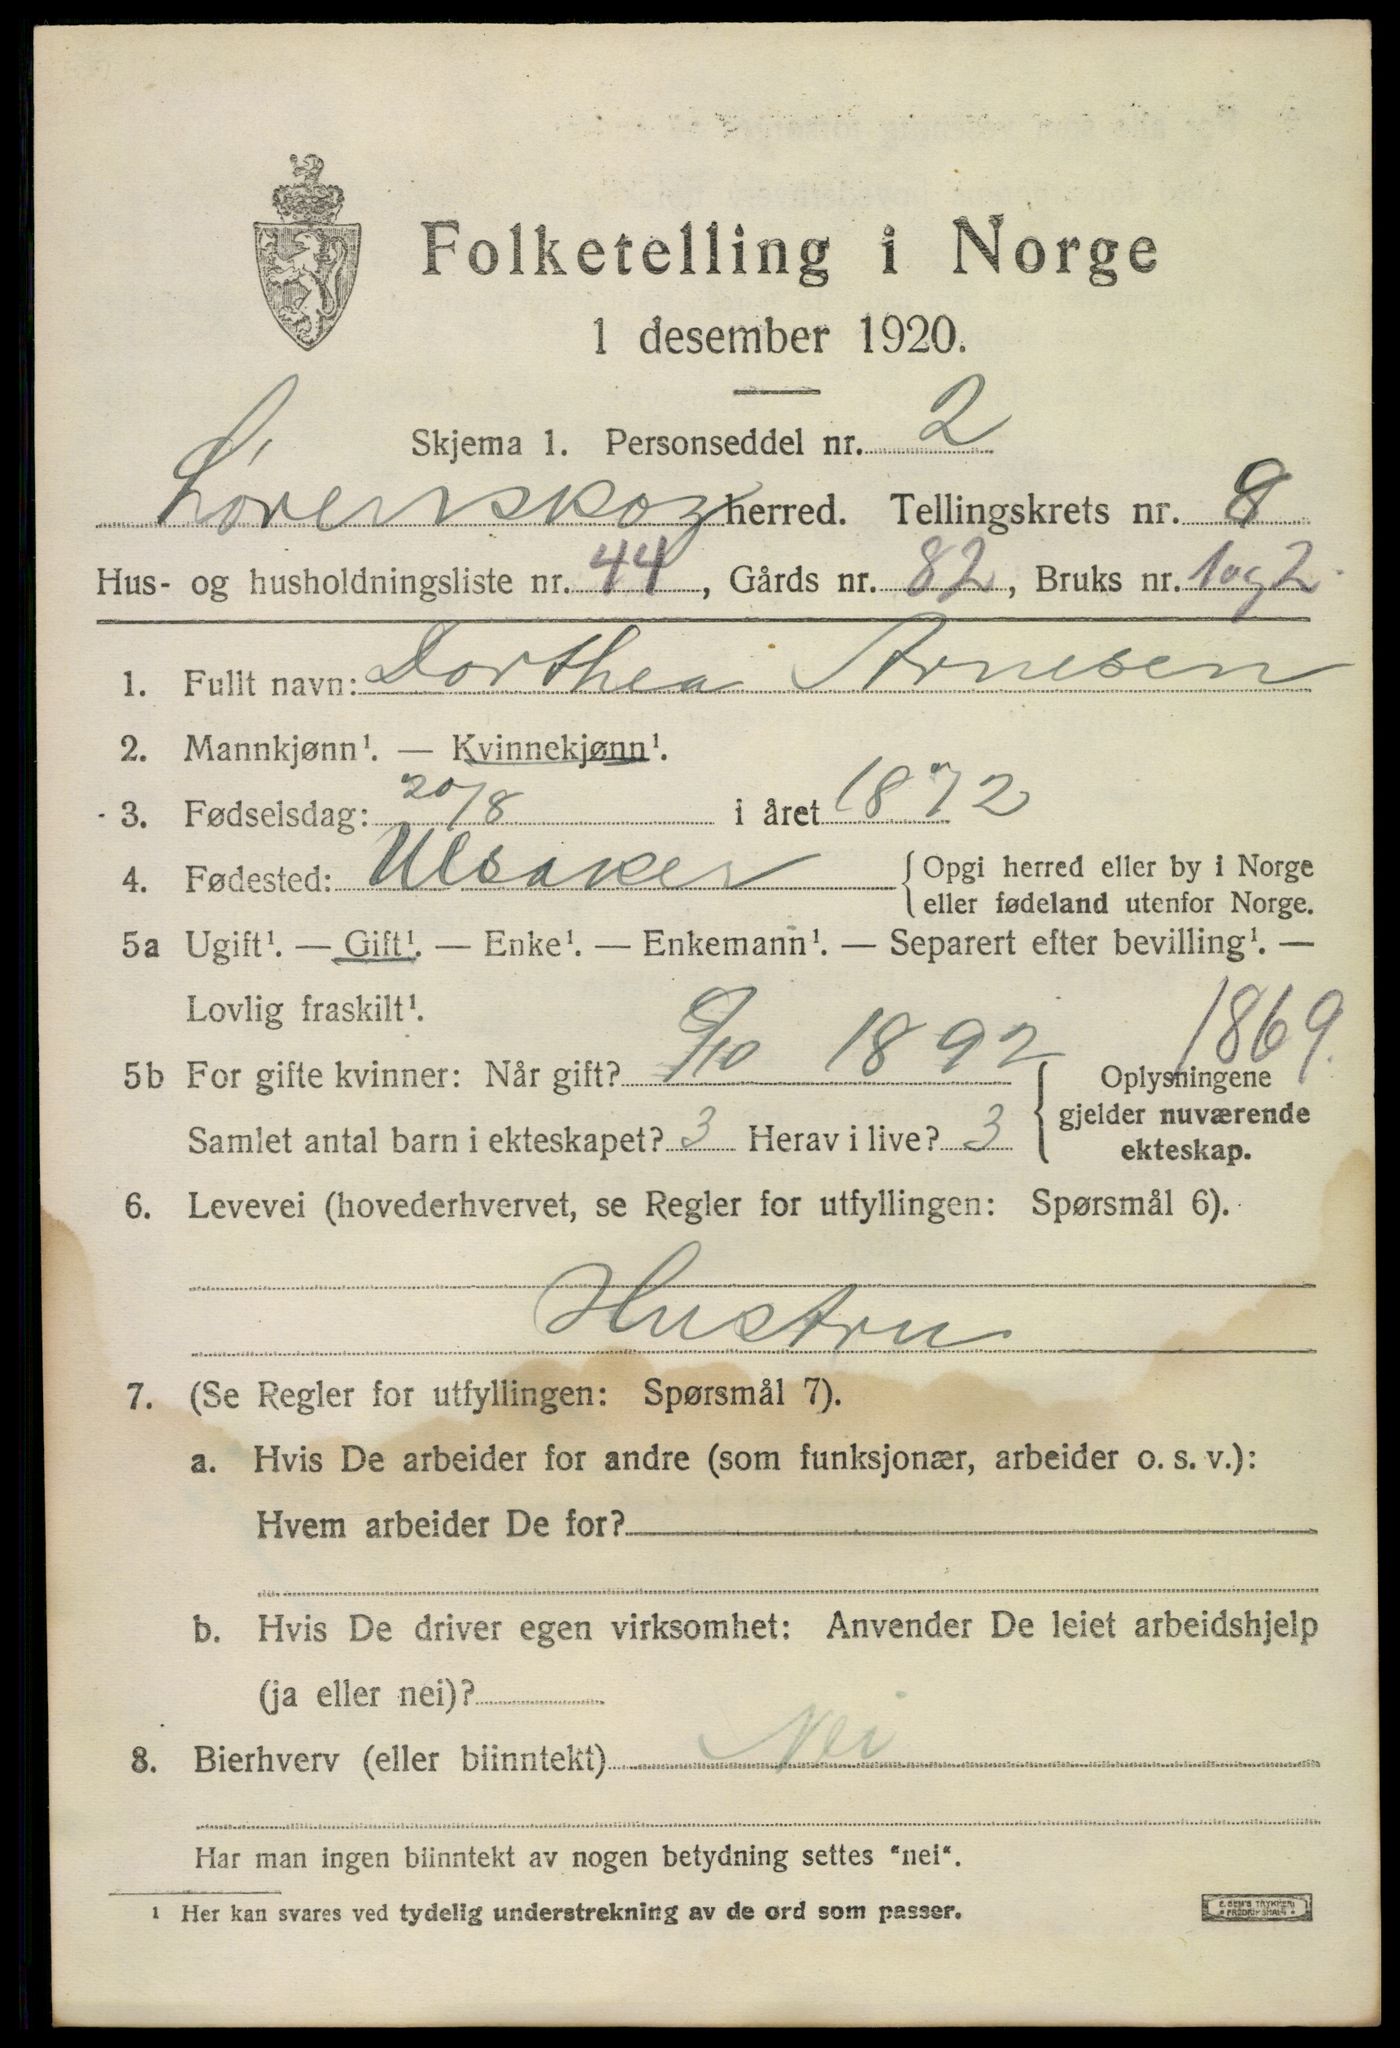 Folketelling i Norge
1 desember 1920.
Skjema 1. Personseddel nr. 2
Lørenskog herred. Tellingskrets nr. 8
Hus- og husholdningsliste nr. 44, Gårds nr. 82, Bruks nr. 1 og 2
1. Fullt navn: Dorthea Arnesen
2. Mannkjønn¹. — Kvinnekjønn¹.
3. Fødselsdag: 20/8 i året 1872
4. Fødested: Ulsaker { Opgi herred eller by i Norge
eller fødeland utenfor Norge.
5a Ugift¹. — Gift¹. — Enke¹. — Enkemann¹. — Separert efter bevilling¹. —
Lovlig fraskilt¹.
1869.
5b For gifte kvinner: Når gift? 9/10 1892 { Oplysningene
gjelder nuværende
Samlet antal barn i ekteskapet? 3 Herav i live? 3
ekteskap.
6. Levevei (hovederhvervet, se Regler for utfyllingen: Spørsmål 6).
Hustru
7. (Se Regler for utfyllingen: Spørsmål 7).
a. Hvis De arbeider for andre (som funksjonær, arbeider o. s. v.):
Hvem arbeider De for?
b. Hvis De driver egen virksomhet: Anvender De leiet arbeidshjelp
(ja eller nei)?
8. Bierhverv (eller biinntekt) Nei
Har man ingen biinntekt av nogen betydning settes "nei".
¹ Her kan svares ved tydelig understrekning av de ord som passer.